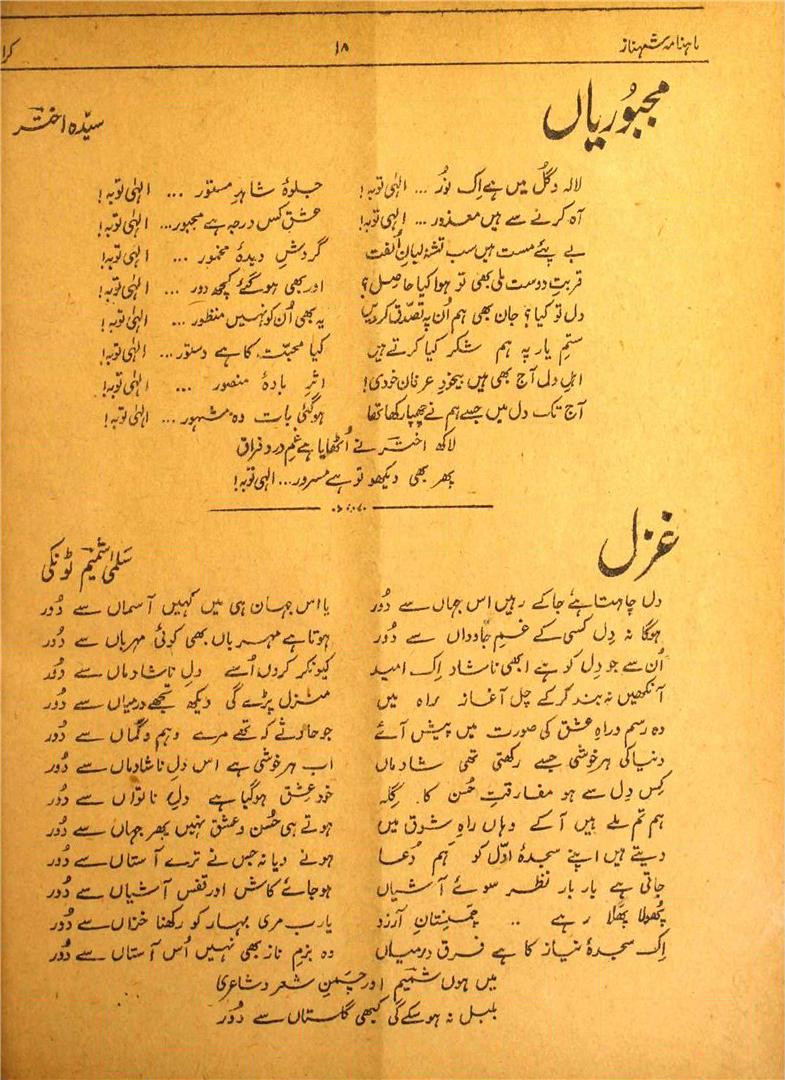 ماہنامہ شہناز ۱۸ کرا
مجبوریاں
سیّدہ اختر
لالہ و گُل میں ہے اِک نُور ... الٰہی توبہ! جلوۂ شاہدِ مستور ... الٰہی توبہ!
آہ کرنے سے ہیں معذور ... الٰہی توبہ! عشق کس درجہ ہے مجبور... الٰہی توبہ!
بے پئے مست ہیں سب تشنہ لبانِ اُلفت گردشِ دیدۂ مخمور ... الٰہی توبہ!
قربتِ دوست ملی بھی تو ہوا کیا حاصل؟ اور بھی ہو گئے کچھ دور ... الٰہی توبہ!
دل تو کیا؟ جان بھی ہم اُن پہ تصدّق کر دیں یہ بھی اُن کو نہیں منظور ... الٰہی توبہ!
ستمِ یار پہ ہم شکر کیا کرتے ہیں کیا محبّت کا ہے دستور ... الٰہی توبہ!
اہلِ دل آج بھی ہیں بیخودِ عرفانِ خودی! اثرِ بادۂ منصور ... الٰہی توبہ!
آج تک دل میں جسے ہم نے چھپا رکھا تھا ہو گئی بات وہ مشہور ... الٰہی توبہ!
لاکھ اختر نے اُٹھایا ہے غمِ درد فراق
پھر بھی دیکھو تو ہے مسرور... الٰہی توبہ!
غزل
سلمیٰ شمیم ٹونکی
دل چاہتا ہے جا کے رہیں اس جہاں سے دُور یا اس جہان ہی میں کہیں آسماں سے دُور
ہوگا نہ دِل کسی کے غمِ جاوداں سے دُور ہوتا ہے مہرباں بھی کوئی مہرباں سے دُور
اُن سے جو دل کو ہے ابھی ناشاد اِک امید کیونکر کروں اُسے دلِ ناشادماں سے دُور
آنکھیں نہ بند کر کے چل آغاز راہ میں منزل پڑے گی دیکھ تجھے درمیاں سے دُور
وہ رسم و راہِ عشق کی صورت میں پیش آئے جو حادثے کہ تھے مرے وہم و گماں سے دُور
دنیا کی ہر خوشی جسے رکھتی تھی شادماں اب ہر خوشی ہے اس دلِ ناشادماں سے دُور
کِس دِل سے ہو مفارقتِ حُسن کا گِلہ خود عشق ہوگیا ہے دلِ ناتواں سے دُور
ہم تم ملے ہیں آ کے وہاں راہِ شوق میں ہوتے ہی حُسن و عشق نہیں پھر جہاں سے دُور
دیتے ہیں اپنے سجدۂ اوّل کو ہم دُعا ہونے دیا نہ جس نے ترے آستاں سے دُور
جاتی ہے بار بار نظر سوئے آشیاں ہو جائے کاش اور قفس آشیاں سے دُور
پُھولا پَھلا رہے .. چمنستانِ آرزو یارب مری بہار کو رکھنا خزاں سے دُور
اِک سجدۂ نیاز کا ہے فرق درمیاں وہ بزمِ ناز بھی نہیں اُس آستاں سے دُور
میں ہوں شمیم اور چمنِ شعر و شاعری
بلبل نہ ہو سکے گی کبھی گلستاں سے دُور